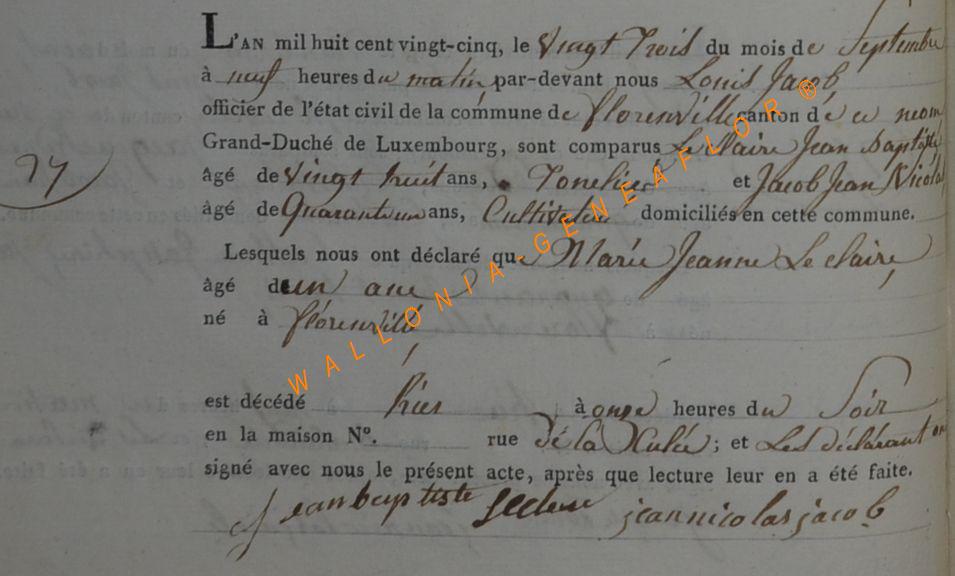 L'AN mil huit cent vingt-cinq, le Vingt Trois du mois de Septembre
à neuf heures du matin par-devant nous Louis Jacob,
officier de l'état civil de la commune de florenville canton de ce nom
Grand-Duché de Luxembourg, sont comparus Le Claire Jean Baptiste
27
âgé de Vingt huit ans, Tonelier et Jacob Jean Nicolas
âgé de Quarant un ans, Cultivateur domiciliés en cette commune.
Lesquels nous ont déclaré que Marie Jeanne Le claire,
âgé d'un ane
né à florenville
est décédé hier à onze heures du Soir
en la maison N°. rue de la ; et Les déclarant on
signé avec nous le présent acte, après que lecture leur en a été faite.
jean baptiste leclere jeannicolas jacob
WALLONIA-GENEAFLOR ®